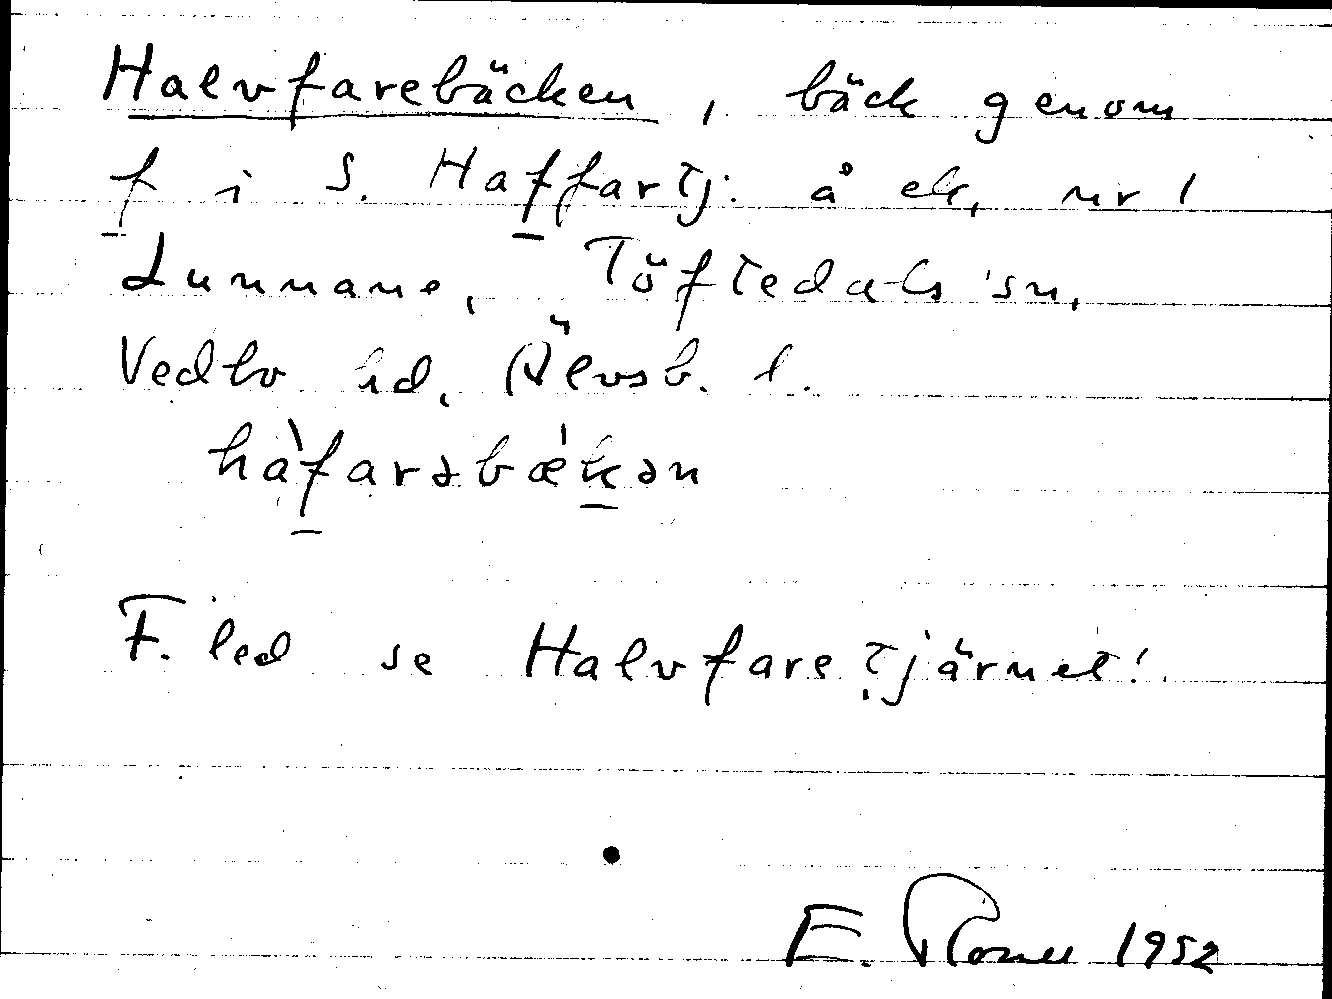 Halvfarebäcken, bäck genom
f i S. Haffartj. å ek, nr 1
Lunnane, Töftedals sn,
Vedbo hd, Älvsb. l.
hàfarəbǽkən
F. led se Halvfaretjärnet!
E. 1952